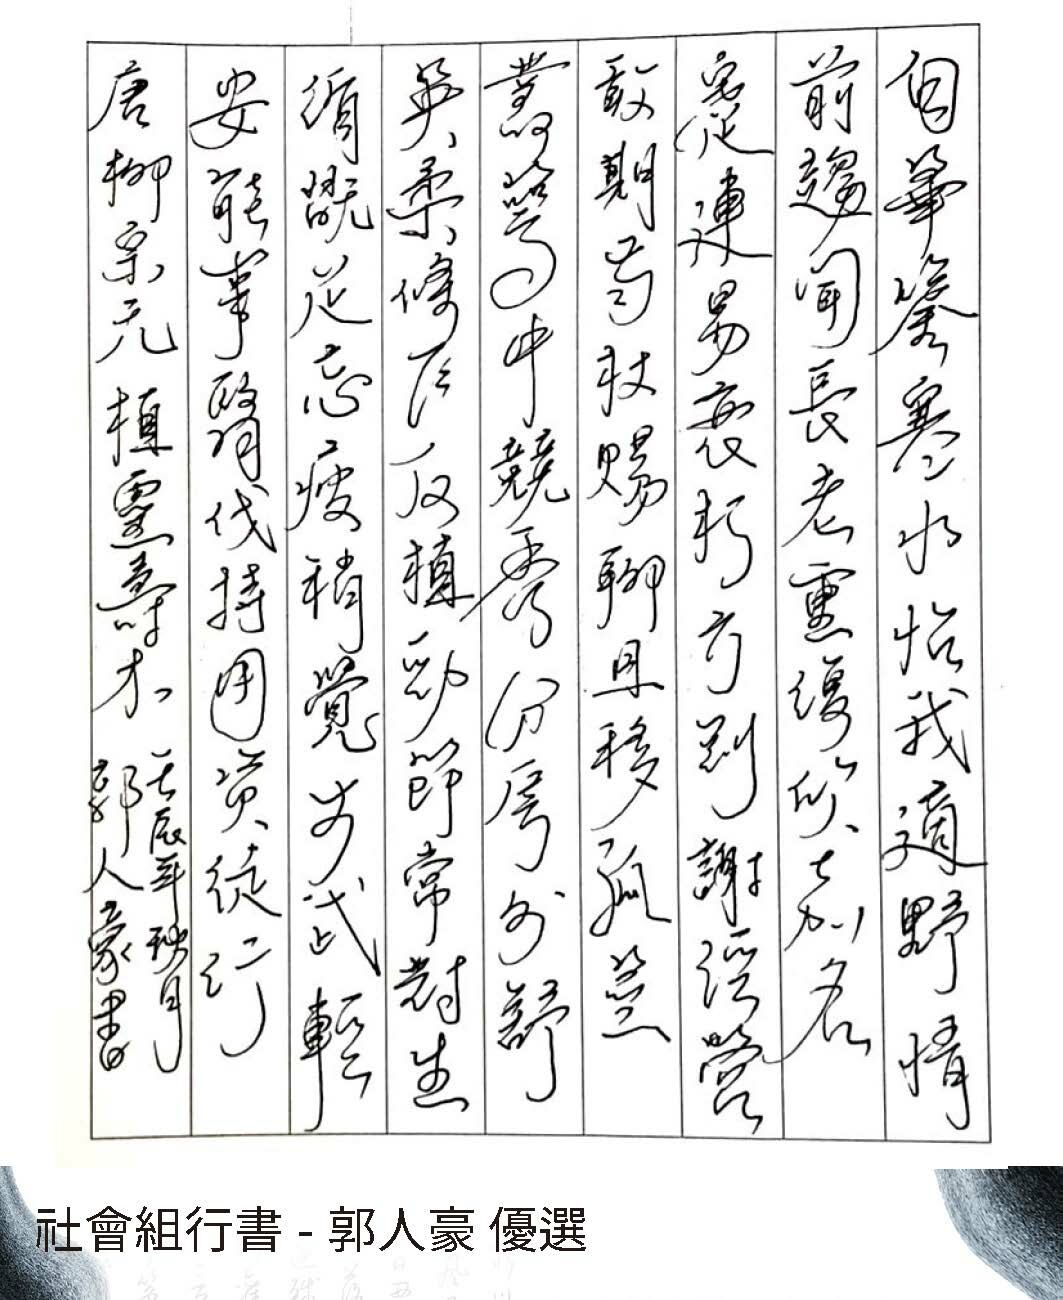 白華鑒寒水怡我適野情
前趨問長老重復欣嘉名
蹇連易衰朽方剛謝經營
敢期齒杖賜聊且移孤莖
叢萼中競秀分房外舒
英柔條乍反植勁節常對生
循翫足忘疲稍覺步武輕
安能事翦伐持用資徒行
唐柳宗元植靈壽木
壬辰年秋月
郭人豪書
社會組行書 - 郭人豪 優選